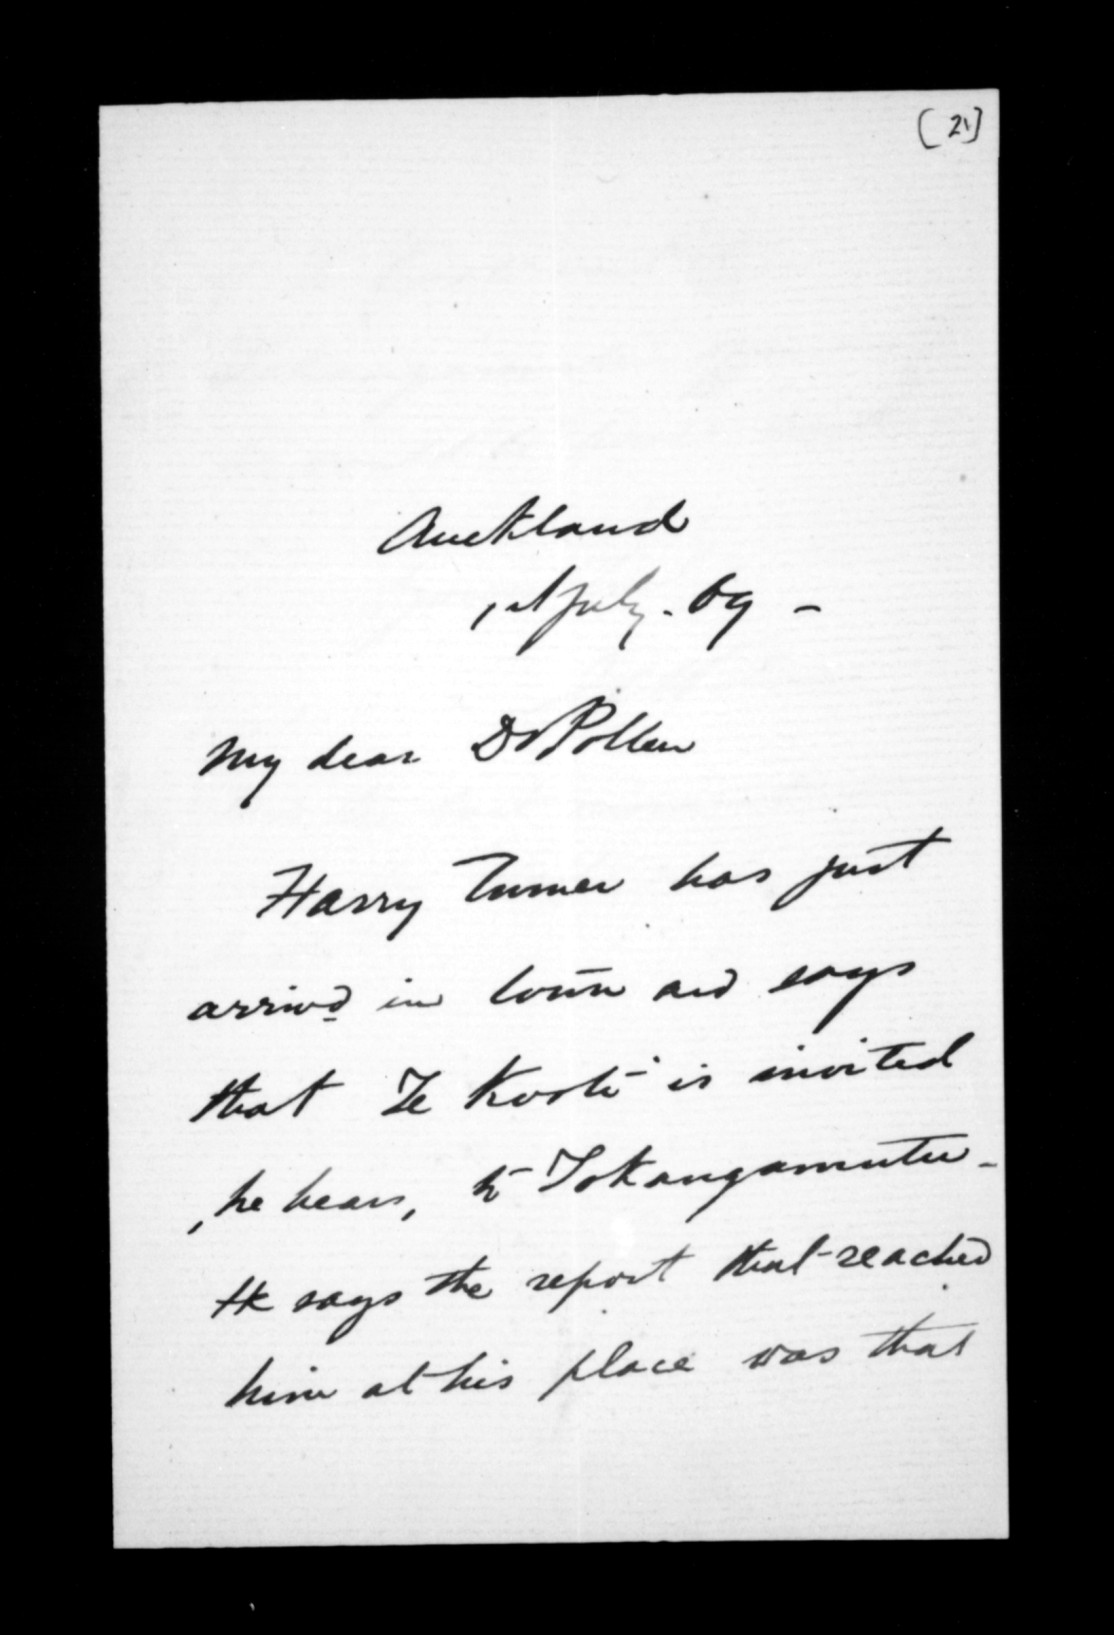 [21]
Auckland
1st July. 69 -
My dear Dr Pollen
Harry Turner has just
arrived in town and says
that Te Kooti is invited
, he hears, to Tokangamutu -
He says the report that reached
him at his place was that